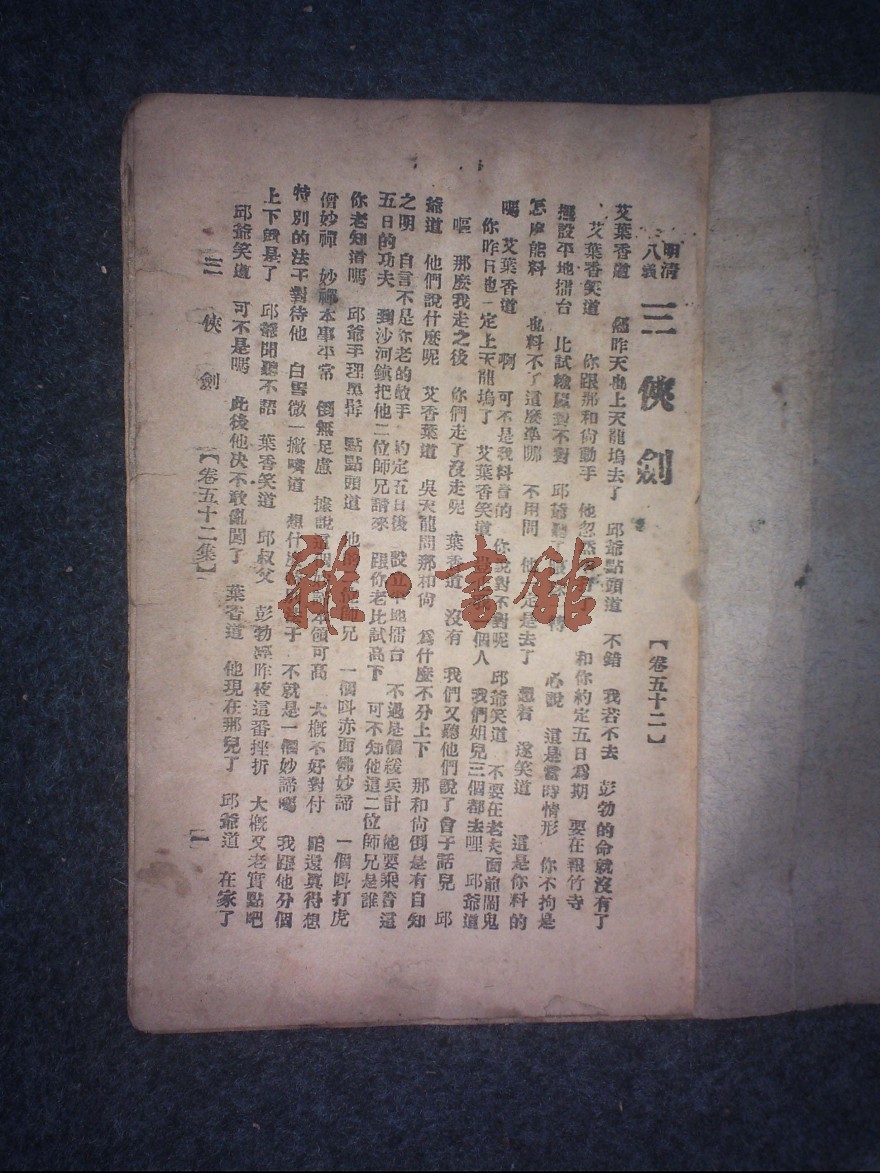 明清
八義
三俠劍
【卷五十二】
艾葉香道 昨天也上天龍塢去了 邱爺點頭道 不錯 我若不去 彭勃的命就沒有了
艾葉香笑道 你跟那和尚動手 他忽然 和你約定五日爲期 要在報竹寺
擺設平地擂台 比試 對不對 邱爺聽了 心說 這是當時情形 你不拘是
怎麼能料 也料不了這麼準哪 不用問 他 定是去了 想着 遂笑道 這是你料的
嗎 艾葉香道 啊 可不是我料着的 你說對不對呢 邱爺笑道 不要在老夫面前鬧鬼
你昨日也一定上天龍塢了 艾葉香笑道 個人 我們姐兒三個都去哩 邱爺道
嘔 那麼我走之後 你們走了沒走呢 葉香道 沒有 我們又聽他們說了會子話兒 邱
爺道 他們說什麼呢 艾香葉道 吳天龍問那和尚 爲什麼不分上下 那和尚倒是有自知
之明 自言不是你老的敵手 約定五日後 設立平地擂台 不過是個緩兵計 他要乘着這
五日的功夫 到沙河鎮把他二位師兄請來 跟你老比試高下 可不知他這二位師兄是誰
你老知道嗎 邱爺手理墨髯 點點頭道 他 師兄 一個叫赤面佛妙諦 一個叫打虎
僧妙禪 妙禪本事平常 倒無足慮 據說這個 本領可高 大概不好對付 咱還眞得想
特別的法子對待他 白雪微一撇嘴道 想什麼 子 不就是一個妙諦嗎 我跟他分個
上下就是了 邱爺聞聽不語 葉香笑道 邱叔父 彭勃經昨夜這番挫折 大概又老實點吧
邱爺笑道 可不是嗎 此後他决不敢亂闖了 葉香道 他現在那兒了 邱爺道 在家了
三俠劍
【卷五十二集】
【一
雜·書館